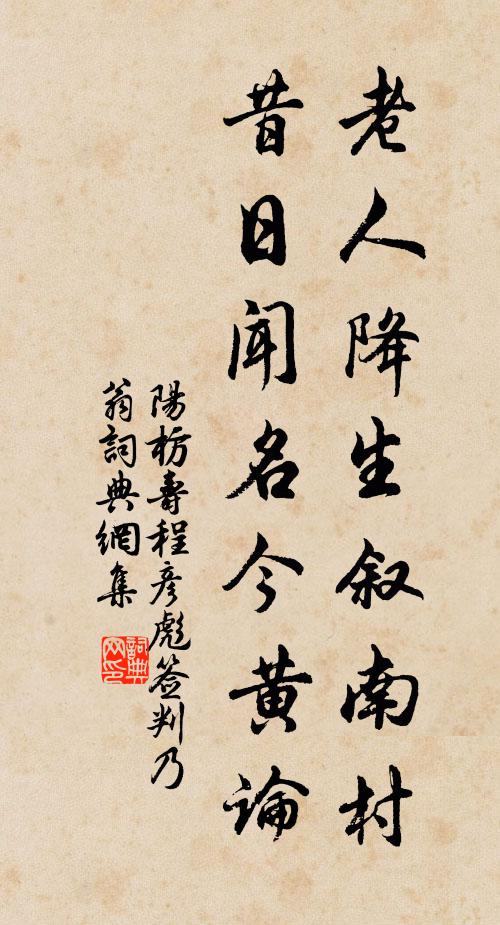 老人降生叙南村
昔日闻名今黄論
陽枋壽程彦彪簽判乃
翁詞典網集
詞典网印